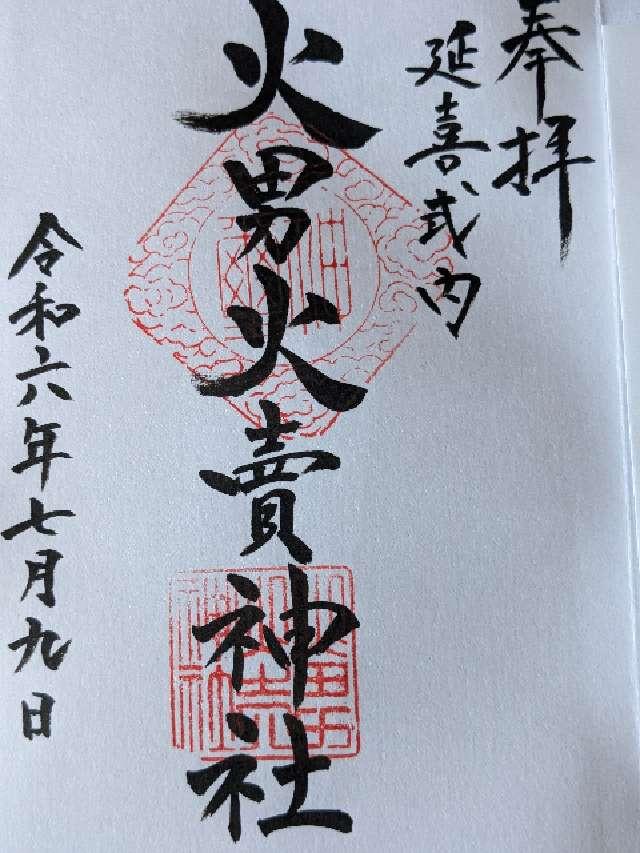 奉拝
延喜式内
火男火賣神社
令和六年七月九日